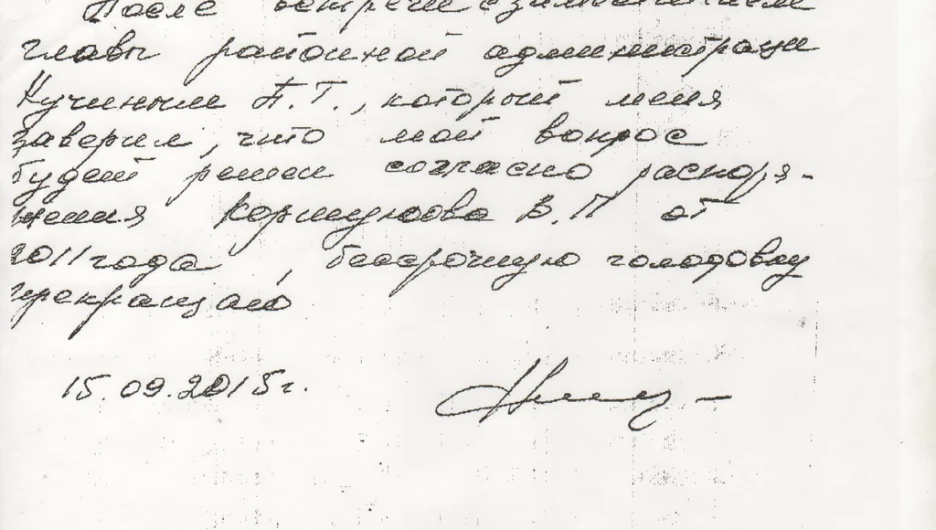 После встречи с заместителем
главы районной администраци
Кучиным П.Г., который меня
заверил, что мой вопрос
будет решен согласно распоря-
жения В.П от
2011 года, бессрочную голодовку
прекращаю
15.09.2015г.